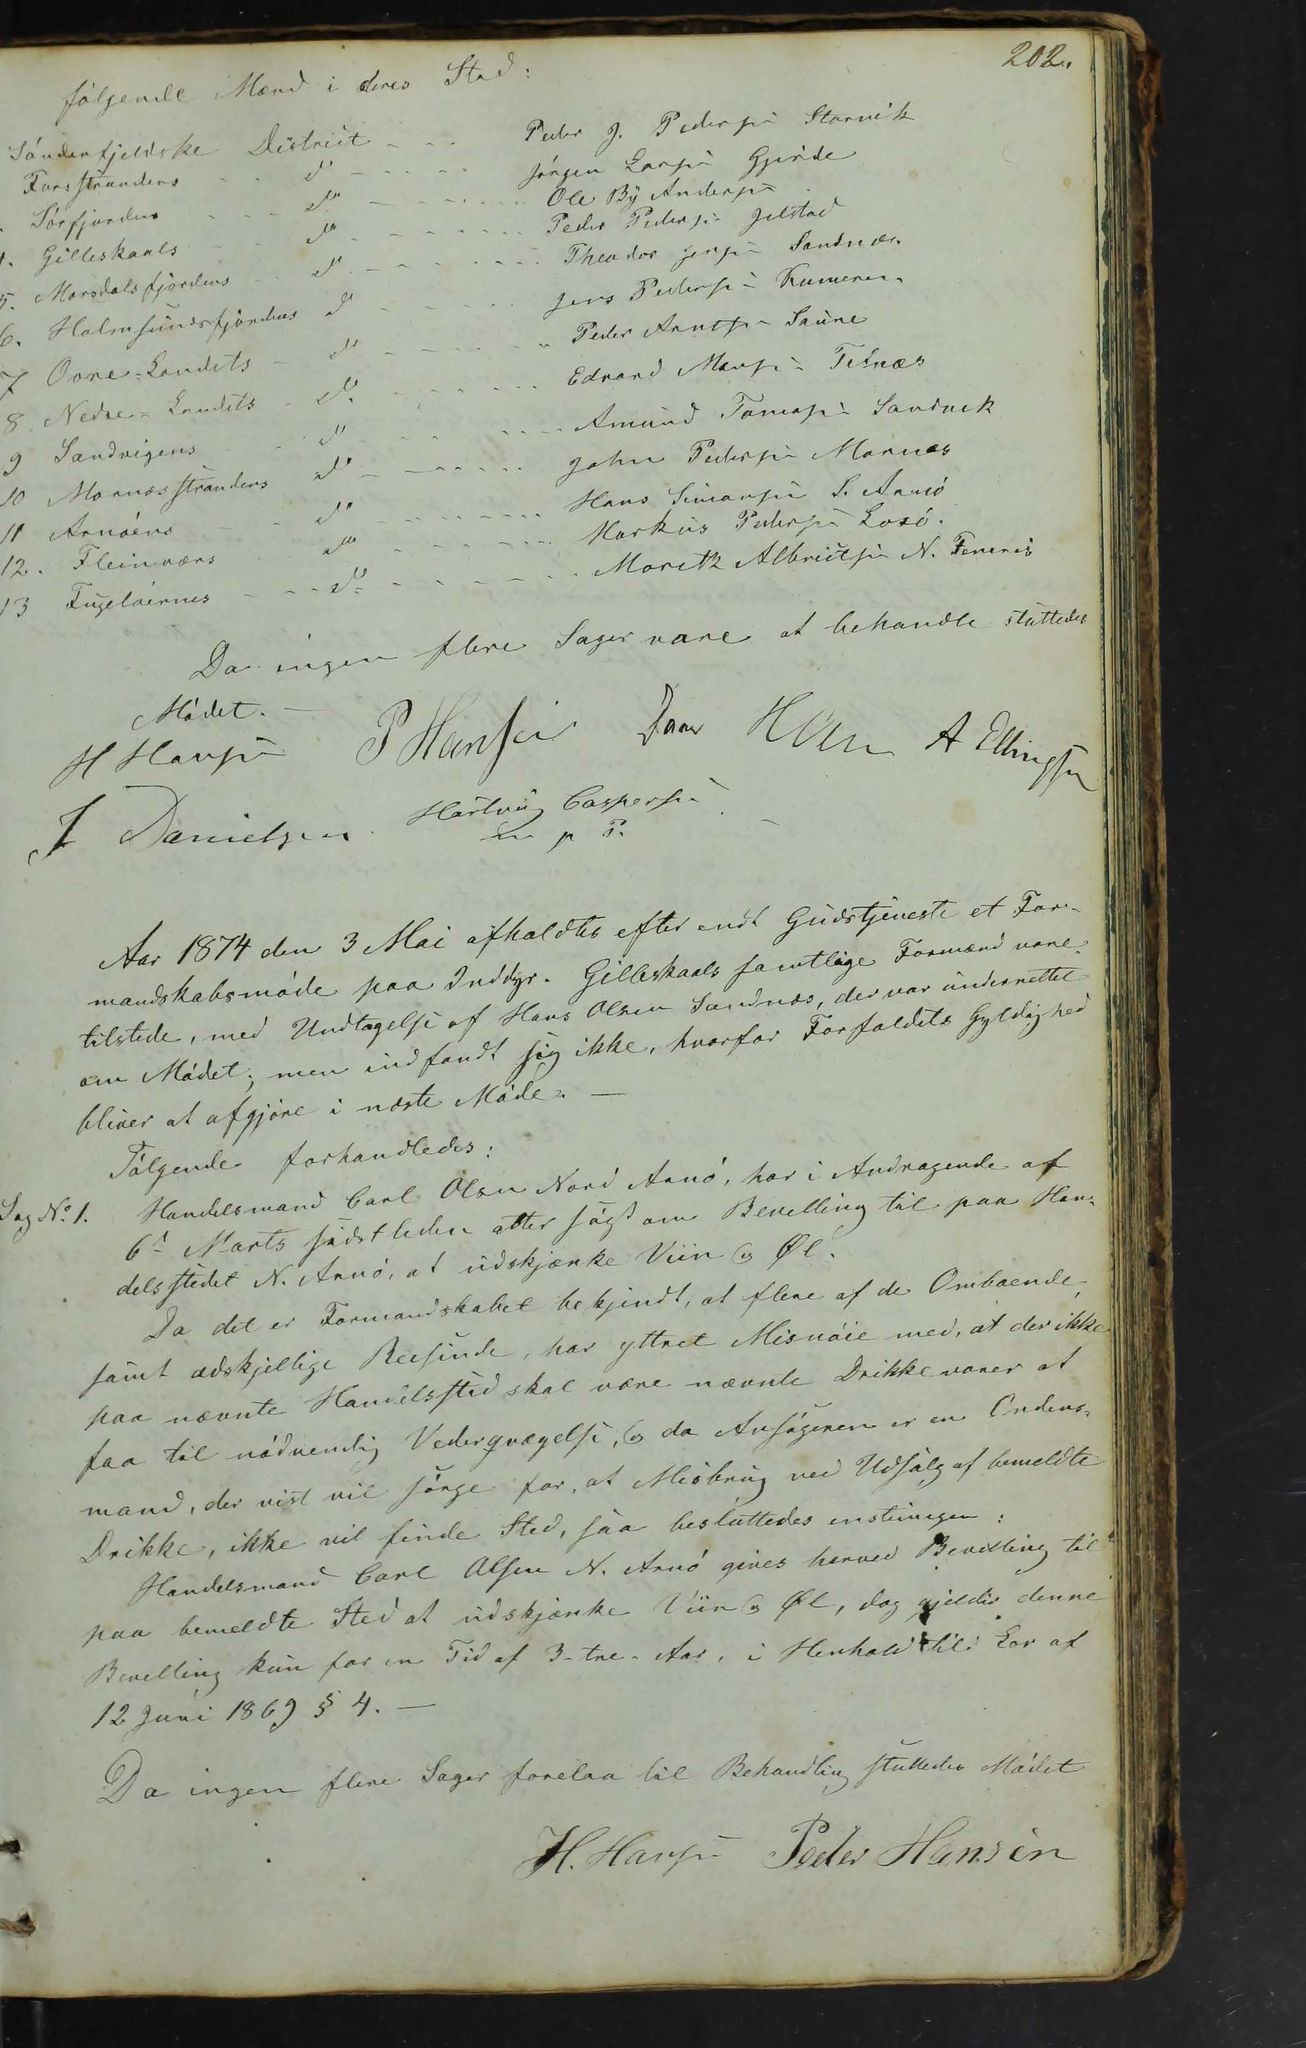 202.
følgende Mænd i deres Stad:
Søndenfjeldske District - - - Peder J. Pedersen Storvik
Forsstrandens - - do - - - - - Jørgen Larsen Gjerde
Sørfjordens - - - do - - - - - Ole By Andersen
4. Gilleskaals - - do - - - - - Peder Pedersen Jelstad
5. Morsdalsfjordens do - - - - - Theodor Jensen Sandnæs
6. Holmsundsfjordens do - - - - - Jens Pedersen Kumeren
7 Ovre-Landets - do - - - - - Peder Arntsen Saura
8. Nedre-Landets - do - - - - - Edvard Mansen Telnæs
9 Sandvigens - do - - - - - Amund Tomasen Sandvik
10 Marnæsstrandens do - - - - - John Pedersen Marnæs
11 Arnøens - - do - - - - - Hans Simonsen S. Arnø
12. Fleinværs do - - - - - Markus Pedersen Losø.
13 Fugeløernes - - do - - - - - Moritz Albrigtsen N. Feneris
Da ingen flere Sager vare at behandle sluttedes
Mødet. -
H Hansen P Hansen Daae H Olsen A Ellingsen
J Danielsen. Hartvig Caspersen
m p P.
Aar 1874 den 3 Mai afholdtes efter endt Gudstjeneste et For-
mandskabsmøde paa Inddyr. Gilleskaals samtlige Formænd vare
tilstede, med Undtagelse af Hans Olsen Sandnæs, der var underrettet
om Mødet; men indfandt sig ikke, hvorfor Forfaldets Gyldighed
bliver at afgjøre i næste Møde. -
Følgende forhandledes:
Sag No. 1. Handelsmand Carl Olsen Nord Arnø, har i Andragende af
6d Marts sidstleden atter søgt om Bevelling til paa Han-
delsstedet N. Arnø, at udskjænke Viin & Øl.
Da det er Formandskabet bekjendt, at flere af de Omboende,
samt adskjellige Reisende, har yttret Misnøie med, at der ikke
paa nævnte Handelssted skal være nævnte Drikkevarer at
faa til nødvendig Vederqvægelse, & da Ansøgeren er en Ordens-
mand, der vist vil sørge for, at Misbrug ved Udsalg af bemeldte
Drikke, ikke vil finde Sted, saa besluttedes enstemigen:
Handelsmand Carl Olsen N. Arnø gives herved Bevilling til
paa bemeldte Sted at udskjænke Viin & Øl, dog gjelder denne
Bevelling kun for en Tid af 3 - tre - Aar, i Henhold til Lov af
12 Juni 1869 § 4. -
Da ingen flere Sager forelaa til Behandling sluttedes Mødet
H. Hansen Peder Hansen